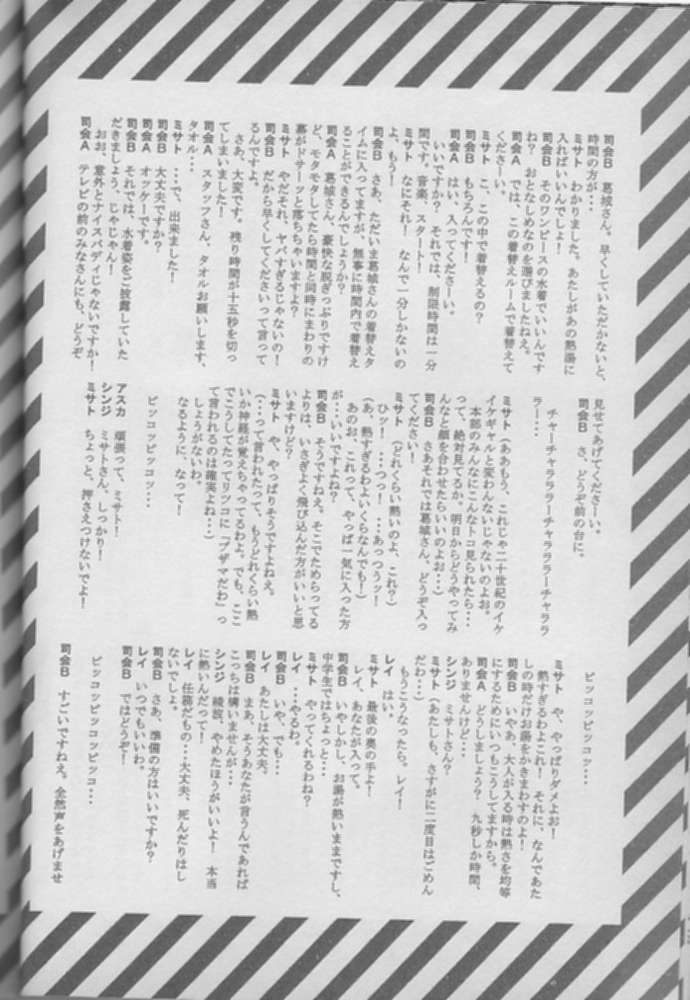 司会B　葛城さん。早くしていただかないと、
時間の方が・・・
ミサト　わかりました。あたしがあの熱湯に
入ればいいんでしょ！
司会B　そのワンピースの水着でいいんです
ね？　おとなしめなのを選びましたねえ。
司会A　では、この着替えルームで着替えて
くださーい。
ミサト　こ、この中で着替えるの？
司会B　もちろんです！
司会A　はい、入ってください。
いいですか？　それでは、制限時間は一分
間です。音楽、スタート！
ミサト　なにそれ！　なんで一分しかないの
よ、もう！
司会B　さあ、ただいま葛城さんの着替えタ
イムに入ってますが、無事に時間内で着替え
ることができるんでしょうか？
司会A　葛城さん、豪快な脱ぎっぷりですけ
ど、モタモタしてたら時間と同時にまわりの
幕がドサーッと落ちちゃいますよ？
ミサト　やだそれ、ヤバすぎるじゃないの！
司会B　だから早くしてくださいって言って
るんですよ。
さあ、大変です。残り時間が十五秒を切っ
てしまいました！
司会A　スタッフさん、タオルお願いします、
タオル・・・
ミサト　・・・で、出来ました！
司会B　大丈夫ですか？
司会A　オッケーです。
司会B　それでは、水着姿をご披露していた
だきましょう、じゃじゃん！
おお、意外とナイスバディじゃないですか！
司会A　テレビの前のみなさんにも、どうぞ
見せてあげてくださーい。
司会B　さ、どうぞ前の台に。
チャーチャラララーチャラララーチャララ
ラー・・・
ミサト　（ああもう、これじゃ二十世紀のイケ
イケギャルと変わんないじゃないのよお。
本部のみんなにこんなトコ見られたら・・・
って、絶対見てるか、明日からどうやってみ
んなと顔を合わせたらいいのよお・・・）
司会B　さあそれでは葛城さん、どうぞ入っ
てください！
ミサト　（どれくらい熱いのよ、これ？）
ひッ！　・・・つっ！　・・・あっつうッ！
（あ、熱すぎるわよいくらなんでも！）
あのお、これって、やっぱ一気に入った方
が・・・いいですよね？
司会B　そうですねえ。そこでためらってる
よりは、いさぎよく飛び込んだ方がいいと思
いますけど？
ミサト　や、やっぱりそうですよねえ。
（・・・って言われたって、もうどれくらい熱
いか神経が覚えちゃってるわよ。でも、ここ
でこうしてたってリツコに「ブザマだわ」っ
て言われるのは確実よね・・・）
しょうがないわ。
なるように、なって！
ピッコッピッコッ・・・
アスカ　頑張って、ミサト！
シンジ　ミサトさん、しっかり！
ミサト　ちょっと、押さえつけないでよ！
ピッコッピッコッ・・・
ミサト　や、やっぱりダメよお！
熱すぎるわよこれ！　それに、なんであた
しの時だけお湯をかきまわすのよ！
司会B　いやあ、大人が入る時は熱さを均等
にするためにいつもこうしてますから。
司会A　どうしましょう？　九秒しか時間、
ありませんけど・・・
シンジ　ミサトさん？
ミサト　（あたしも、さすがに二度目はごめん
だわ・・・）
もうこうなったら。レイ！
レイ　はい。
ミサト　最後の奥の手よ！
レイ、あなたが入って。
司会B　いやしかし、お湯が熱いままですし、
中学生ではちょっと・・・
ミサト　やってくれるわね？
レイ　・・・やるわ。
司会B　いや、でも・・・
レイ　あたしは大丈夫。
司会B　まあ、そうあなたが言うんであれば
こっちは構いませんが・・・
シンジ　綾波、やめたほうがいいよ！　本当
に熱いんだって！
レイ　任務だもの・・・大丈夫、死んだりはし
ないでしょ。
司会B　さあ、準備の方はいいですか？
レイ　いつでもいいわ。
司会B　ではどうぞ！
ピッコッピッコッピッコ・・・
司会B　すごいですねえ。全然声をあげませ